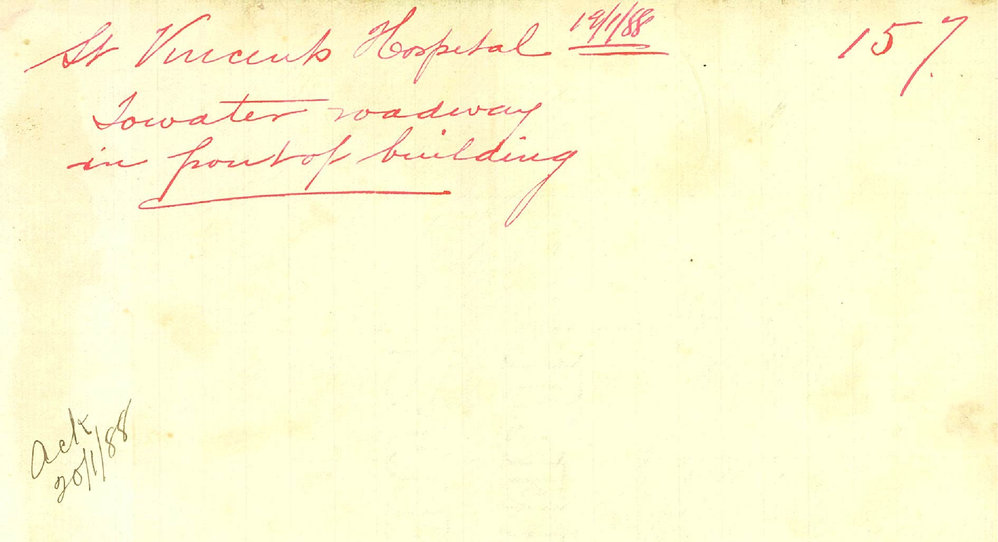 St Vincents Hospital 19/1/88
157
To water roadway
in front of building
Ack
20/1/88